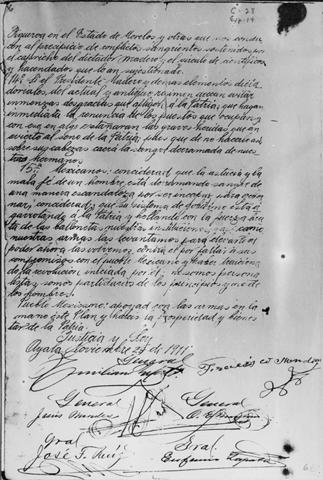 figuran en el Estado de Morelos y otros que nos conducen
al precipicio de conflictos sangrientos sostenidos por
el capricho del dictador Madero y el circulo de cientificos
y hacendados que lo han sugestionado.
14º Si el Presidente Madero y demas elementos dicta-
doriales del actual y antiguo regimen desean evitar
inmensas desgracias que afligen a la Patria, que hagan
inmediata la renuncia de los puestos que ocupan y
con eso en algo restañaran las graves heridas que han
abierto al seno de la Patria, pues que de no hacerlo asi
sobre sus cabezas caerá la sangre derramada de nues-
tros hermanos
15º Mexicanos: considerad que la astucia y la
mala fé de un hombre está derramando sangre de
una manera escandalosa por ser incapaz para gober-
nar, considerad que su sistema de Gobierno está a-
garrotando a la Patria y hollando con la fuerza bru-
ta de las bayonetas nuestras instituciones; y así como
nuestras armas las levantamos para elevarlo al
poder ahora las volvemos contra él por faltar a sus
compromisos con el pueblo Mexicano y haber traicionado
la revolucion iniciada por él; no somos persona-
listas, somos partidarios de los principios y no de
los hombres.
Pueblo Mexicano: apoyad con las armas en la
mano este Plan y hareis la prosperidad y bienes-
tar de la Patria.
Justicia y Ley
Ayala Noviembre 28 de 1911
General
Emiliano Zapata
General
General
Jesús
Gral
José T. Ruiz
Gral.
Eufemio Zapata